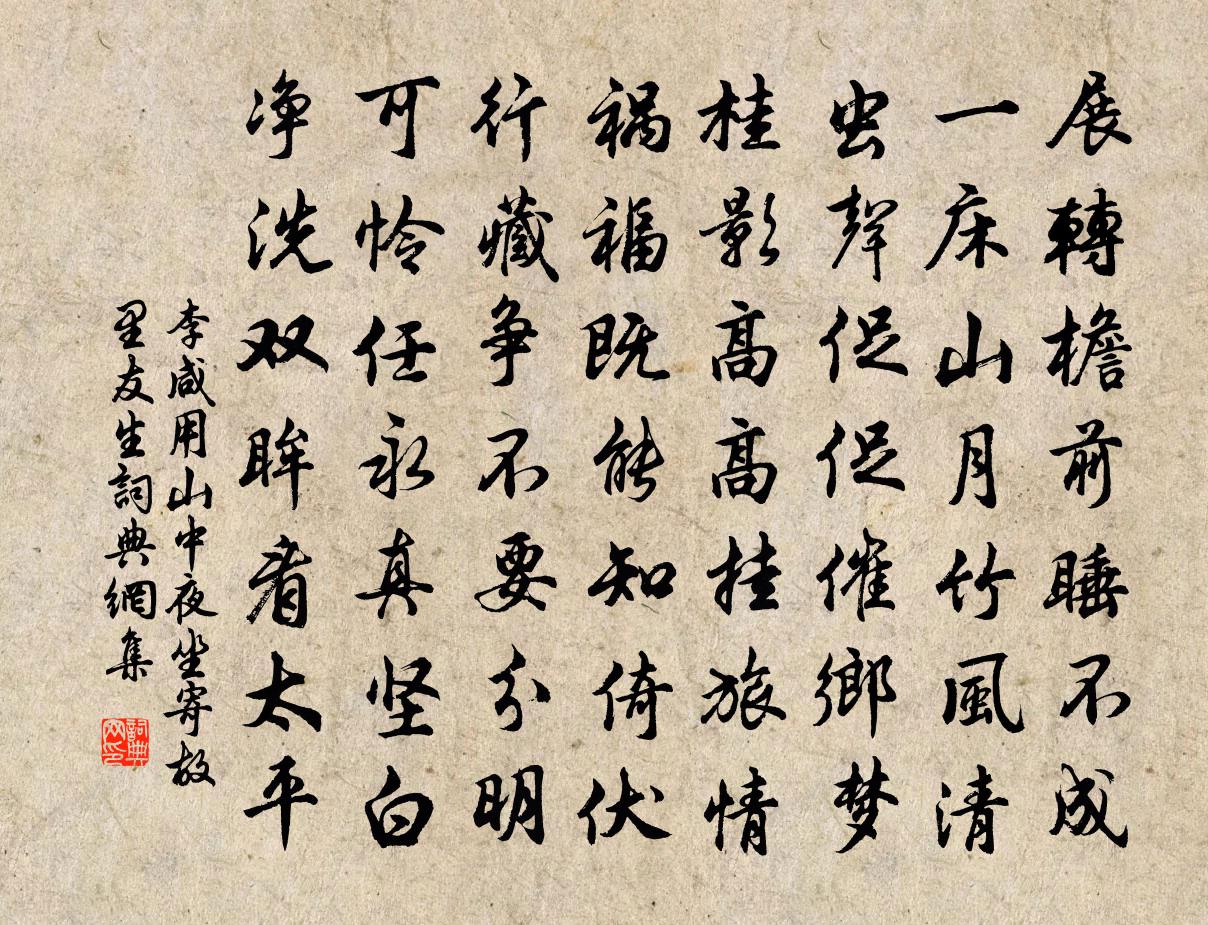 展轉檐前睡不成
一床山月竹風清
虫聲促促催鄉梦
桂影高高挂旅情
祸福既能知倚伏
行藏争不要分明
可怜任永真坚白
净洗双眸看太平
李咸用山中夜坐寄故
里友生詞典網集
詞典网印